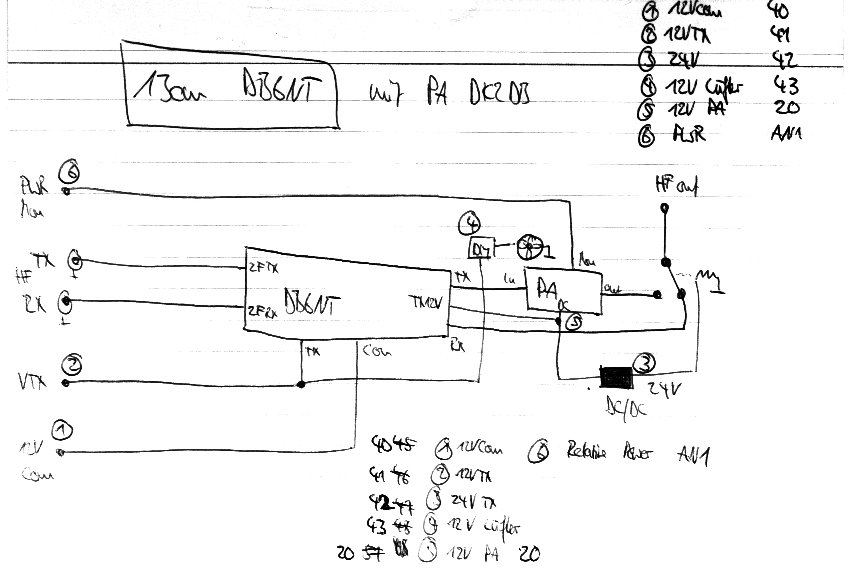 ① 12Vcom 40
② 12VTX 41
③ 24V 42
④ 12V Lüfter 43
⑤ 12V PA 20
⑥ PWR AN1
13cm DB6NT mit PA DK2DB
⑥
PWR
Mon
HF out
④
TX
HF
RX
ZFTX
ZFRX
DB6NT
TX
TX12V
Rx
TX
Con
In
PA
Mon
out
DC
⑤
② 
VTX
③
24V
DC/DC
①
12V
Com
40 45 ① 12VCom ⑥ Relative Power AN1
41 46 ② 12VTX
42 47 ③ 24V TX
43 48 ④ 12V Lüfter
20 12V PA 20